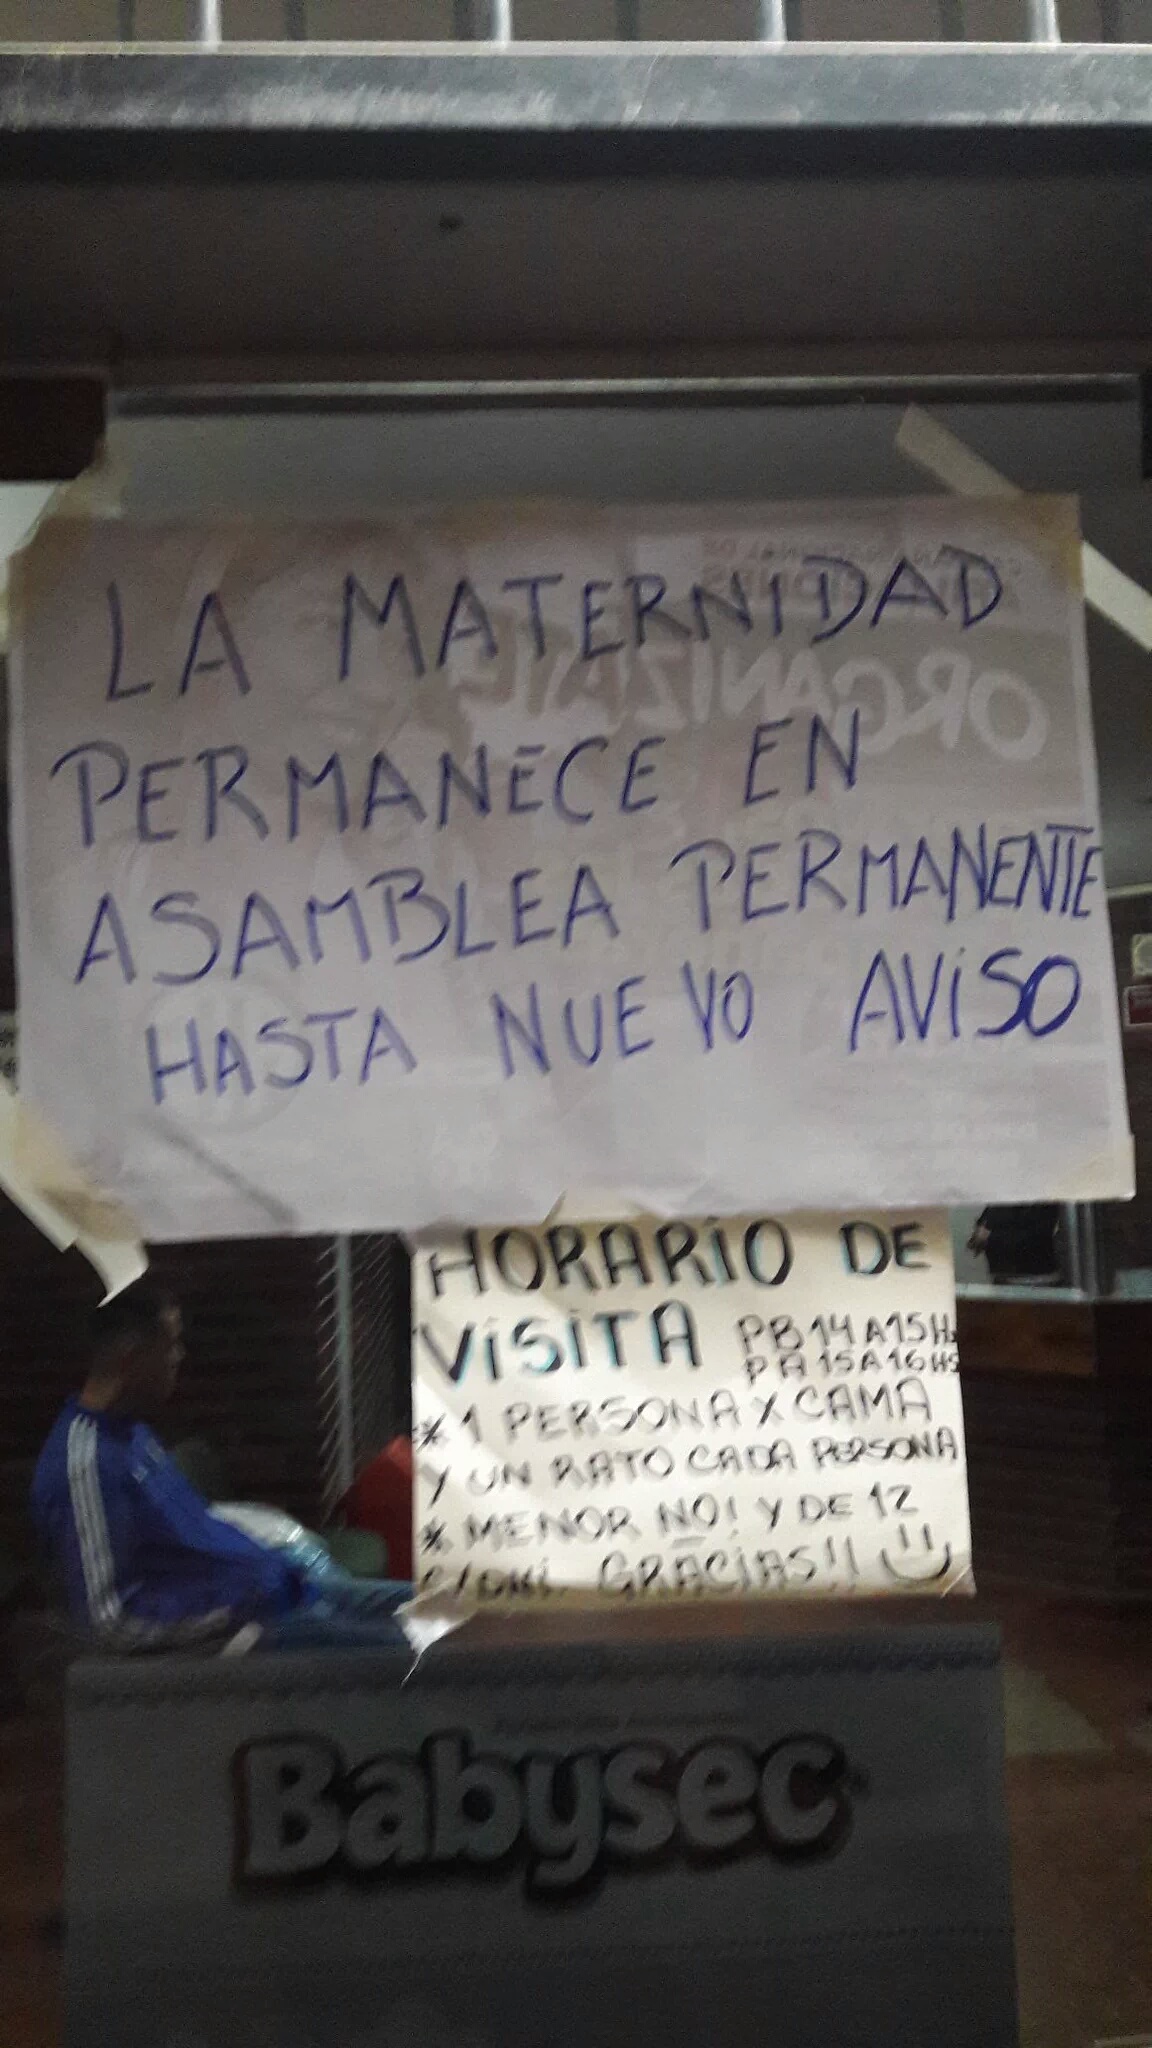 LA MATERNIDAD
PERMANECE EN
ASAMBLEA PERMANENTE
HASTA NUEVO AVISO
ORGANIZA
HORARIO DE
VISITA PB 14 A 15 Hs
PA 15 A 16 HS
* 1 PERSONA X CAMA
Y UN RATO CADA PERSONA
* MENOR NO! Y DE 12
C/DNI. GRACIAS!!
Babysec